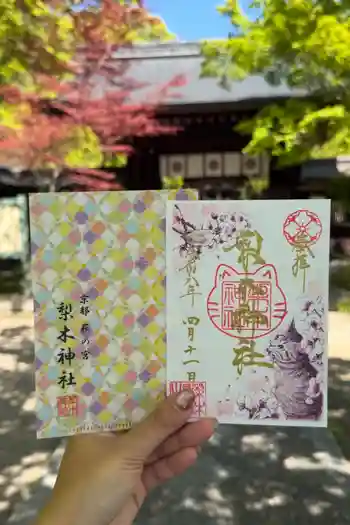 京都 萩の宮
梨木神社
奉拝
梨木神社
令和八年 四月十一日